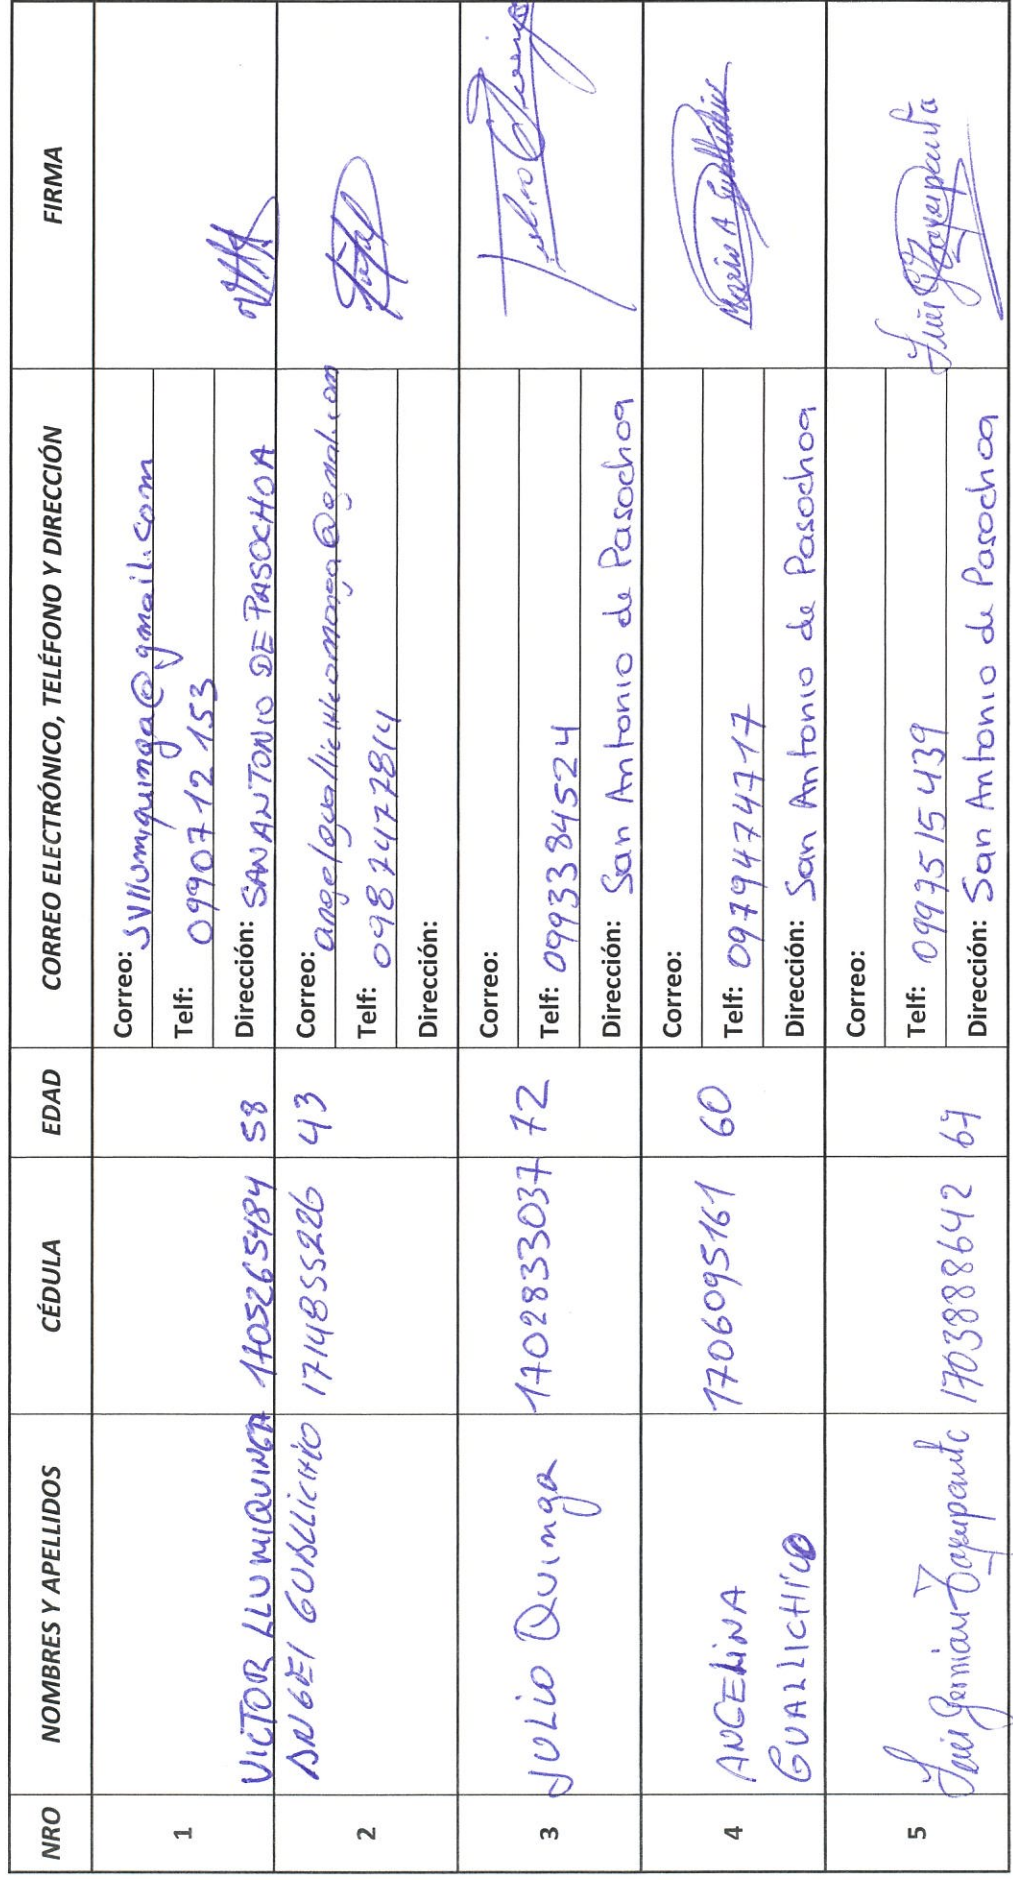 NRO NOMBRES Y APELLIDOS CÉDULA EDAD CORREO ELECTRÓNICO, TELÉFONO Y DIRECCIÓN FIRMA
1 VICTOR LLUMIQUINGA 1705265484 58
Correo: svllumiquinga@gmail.com
Telf: 0990712153
Dirección: SAN ANTONIO DE PASOCHOA
2 ANGEl GUALLICHICO 1714855226 43
Correo:
Telf: 0987477814
Dirección:
3 JULIO Quinga 1702833037 72
Correo:
Telf: 0993384524
Dirección: San Antonio de Pasochoa
4 ANGELINA GUALLICHICO 1706095161 60
Correo:
Telf: 0979474717
Dirección: San Antonio de Pasochoa
Maria A Guallichico
5 Luis German Zapupanta 1703888642 64
Correo:
Telf: 0997515439
Dirección: San Antonio de Pasochoa
Luis G